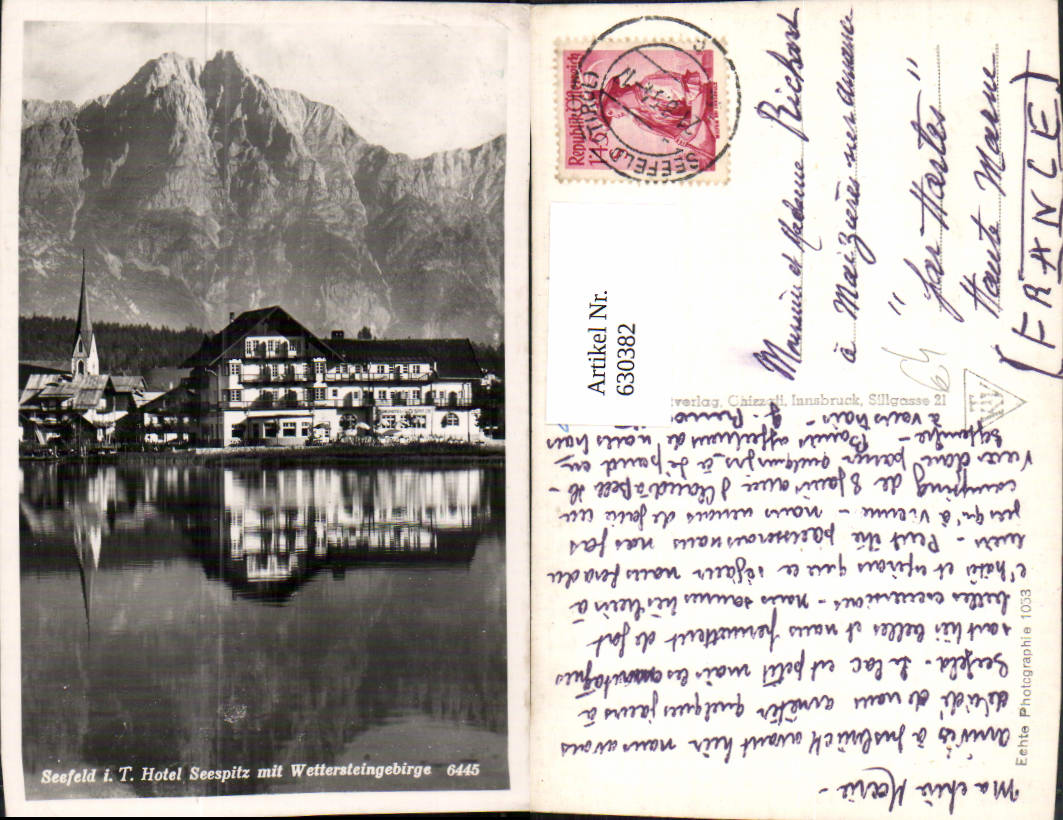 Seefeld i. T. Hotel Seespitz mit Wettersteingebirge 6445
Republik Österreich
1'45
SEEFELD (TIROL)
Artikel Nr.
630382
Monsieur et Madame Richard
à Maizières sur amance
" par Hortes "
Haute Marne
(FRANCE)
64
verlag, Chizzali, Innsbruck, Sillgasse 21
Echte Photographie 1053
Ma chère Marie -
arrivés à Insbrück avant hier nous avons
décidé de nous arrêter quelques jours à
Seefeld - Le lac est petit mais les montagnes
sont très belles et nous permettent de fort
belles excursions - nous sommes très bien à
l'hôtel et espérons que ce séjour nous fera du
bien - Peut être pousserons nous, nos pas
jusqu'à Vienne - nous venons de faire un
camping de 8 jours avec
Veux donc passer quelques jrs à
Septembre - Bons affectueux de nous trois
à vous trois -